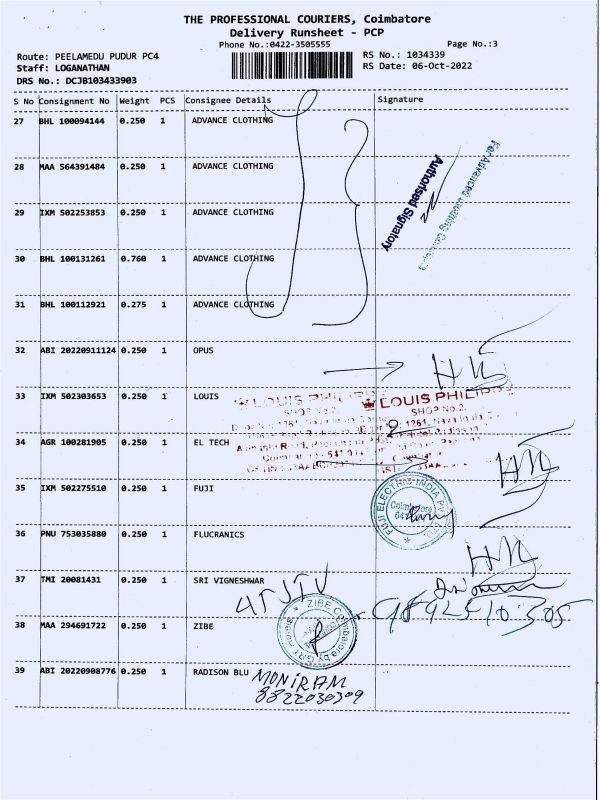 THE PROFESSIONAL COURIERS, Coimbatore
Delivery Runsheet - PCP
Phone No.:0422-3505555 Page No.:3
Route: PEELAMEDU PUDUR PC4 RS No.: 1034339
Staff: LOGANATHAN RS Date: 06-Oct-2022
DRS No.: DCJB103433903
S No Consignment No Weight PCS Consignee Details Signature
27 BHL 100094144 0.250 1 ADVANCE CLOTHING
28 MAA 564391484 0.250 1 ADVANCE CLOTHING
Authorised Signatory
29 IXM 502253853 0.250 1 ADVANCE CLOTHING
30 BHL 100131261 0.760 1 ADVANCE CLOTHING
31 BHL 100112921 0.275 1 ADVANCE CLOTHING
32 ABI 20220911124 0.250 1 OPUS
33 IXM 502303653 0.250 1 LOUIS
LOUIS PHILIPPE LOUIS PHILIPPE
SHOP No.2, SHOP No.2,
34 AGR 100281905 0.250 1 EL TECH
35 IXM 502275510 0.250 1 FUJI
FUJI ELECTRIC INDIA PVT. LTD.
Coimbatore
36 PNU 753035880 0.250 1 FLUCRANICS
37 TMI 20081431 0.250 1 SRI VIGNESHWAR
38 MAA 294691722 0.250 1 ZIBE
ZIBE Coimbatore by GRT Hotels
39 ABI 20220908776 0.250 1 RADISON BLU
MONIRAM
8822030309